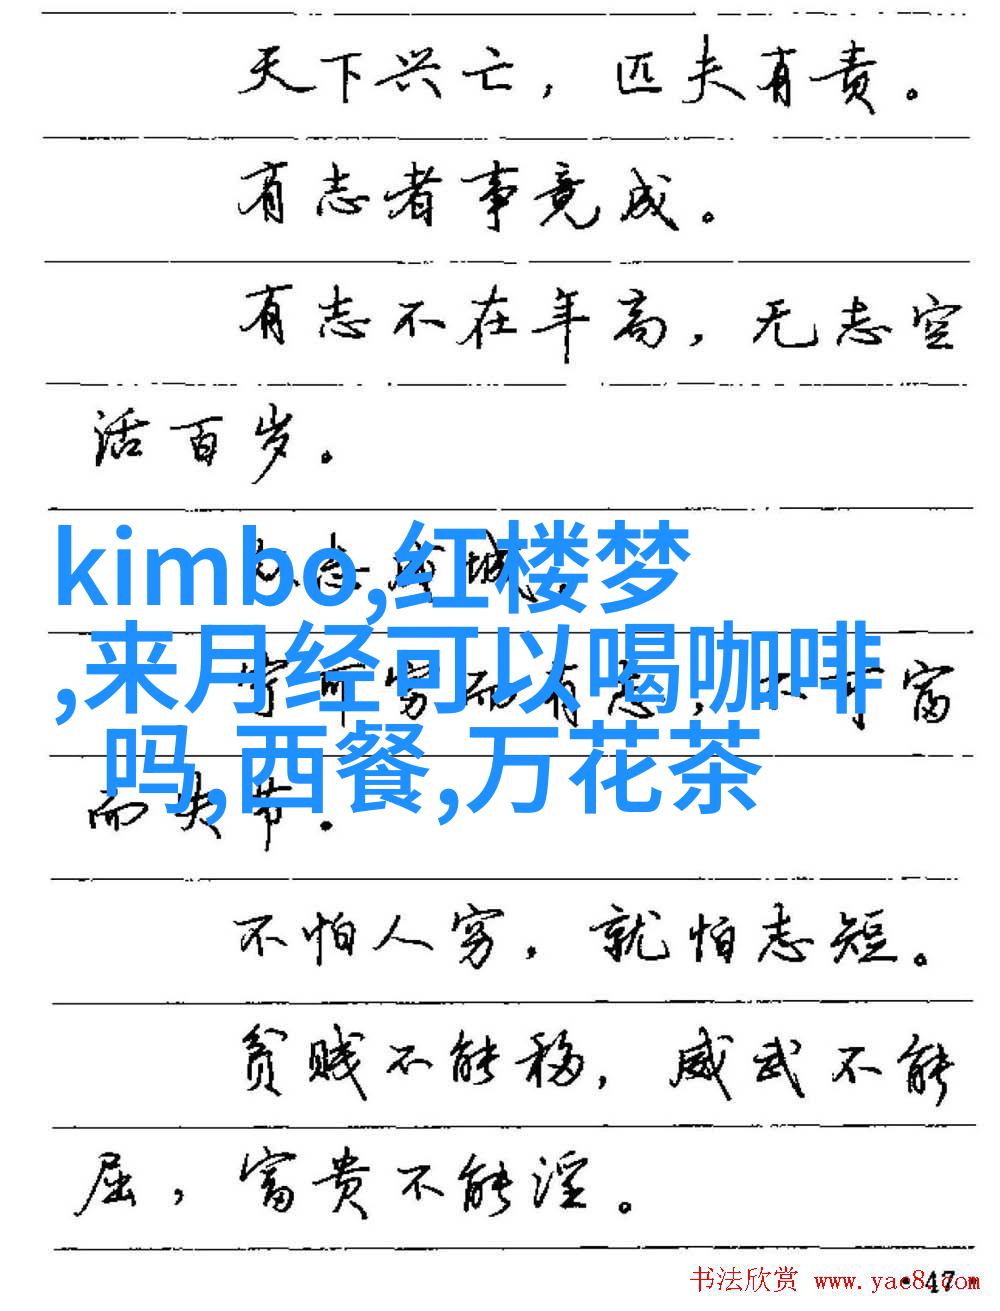 天下兴亡，匹夫有责。
有志者事竟成。
有志不在年高，无志空
活百岁。
志成城，
kimbo,红楼梦
,来月经可以喝咖啡
吗,西餐,万花茶
宁可穷而有志，不可富
而失节。
不怕人穷，就怕志短。
贫贱不能移，威武不能
屈，富贵不能淫。
书法欣赏 www.yac8.com
·47·